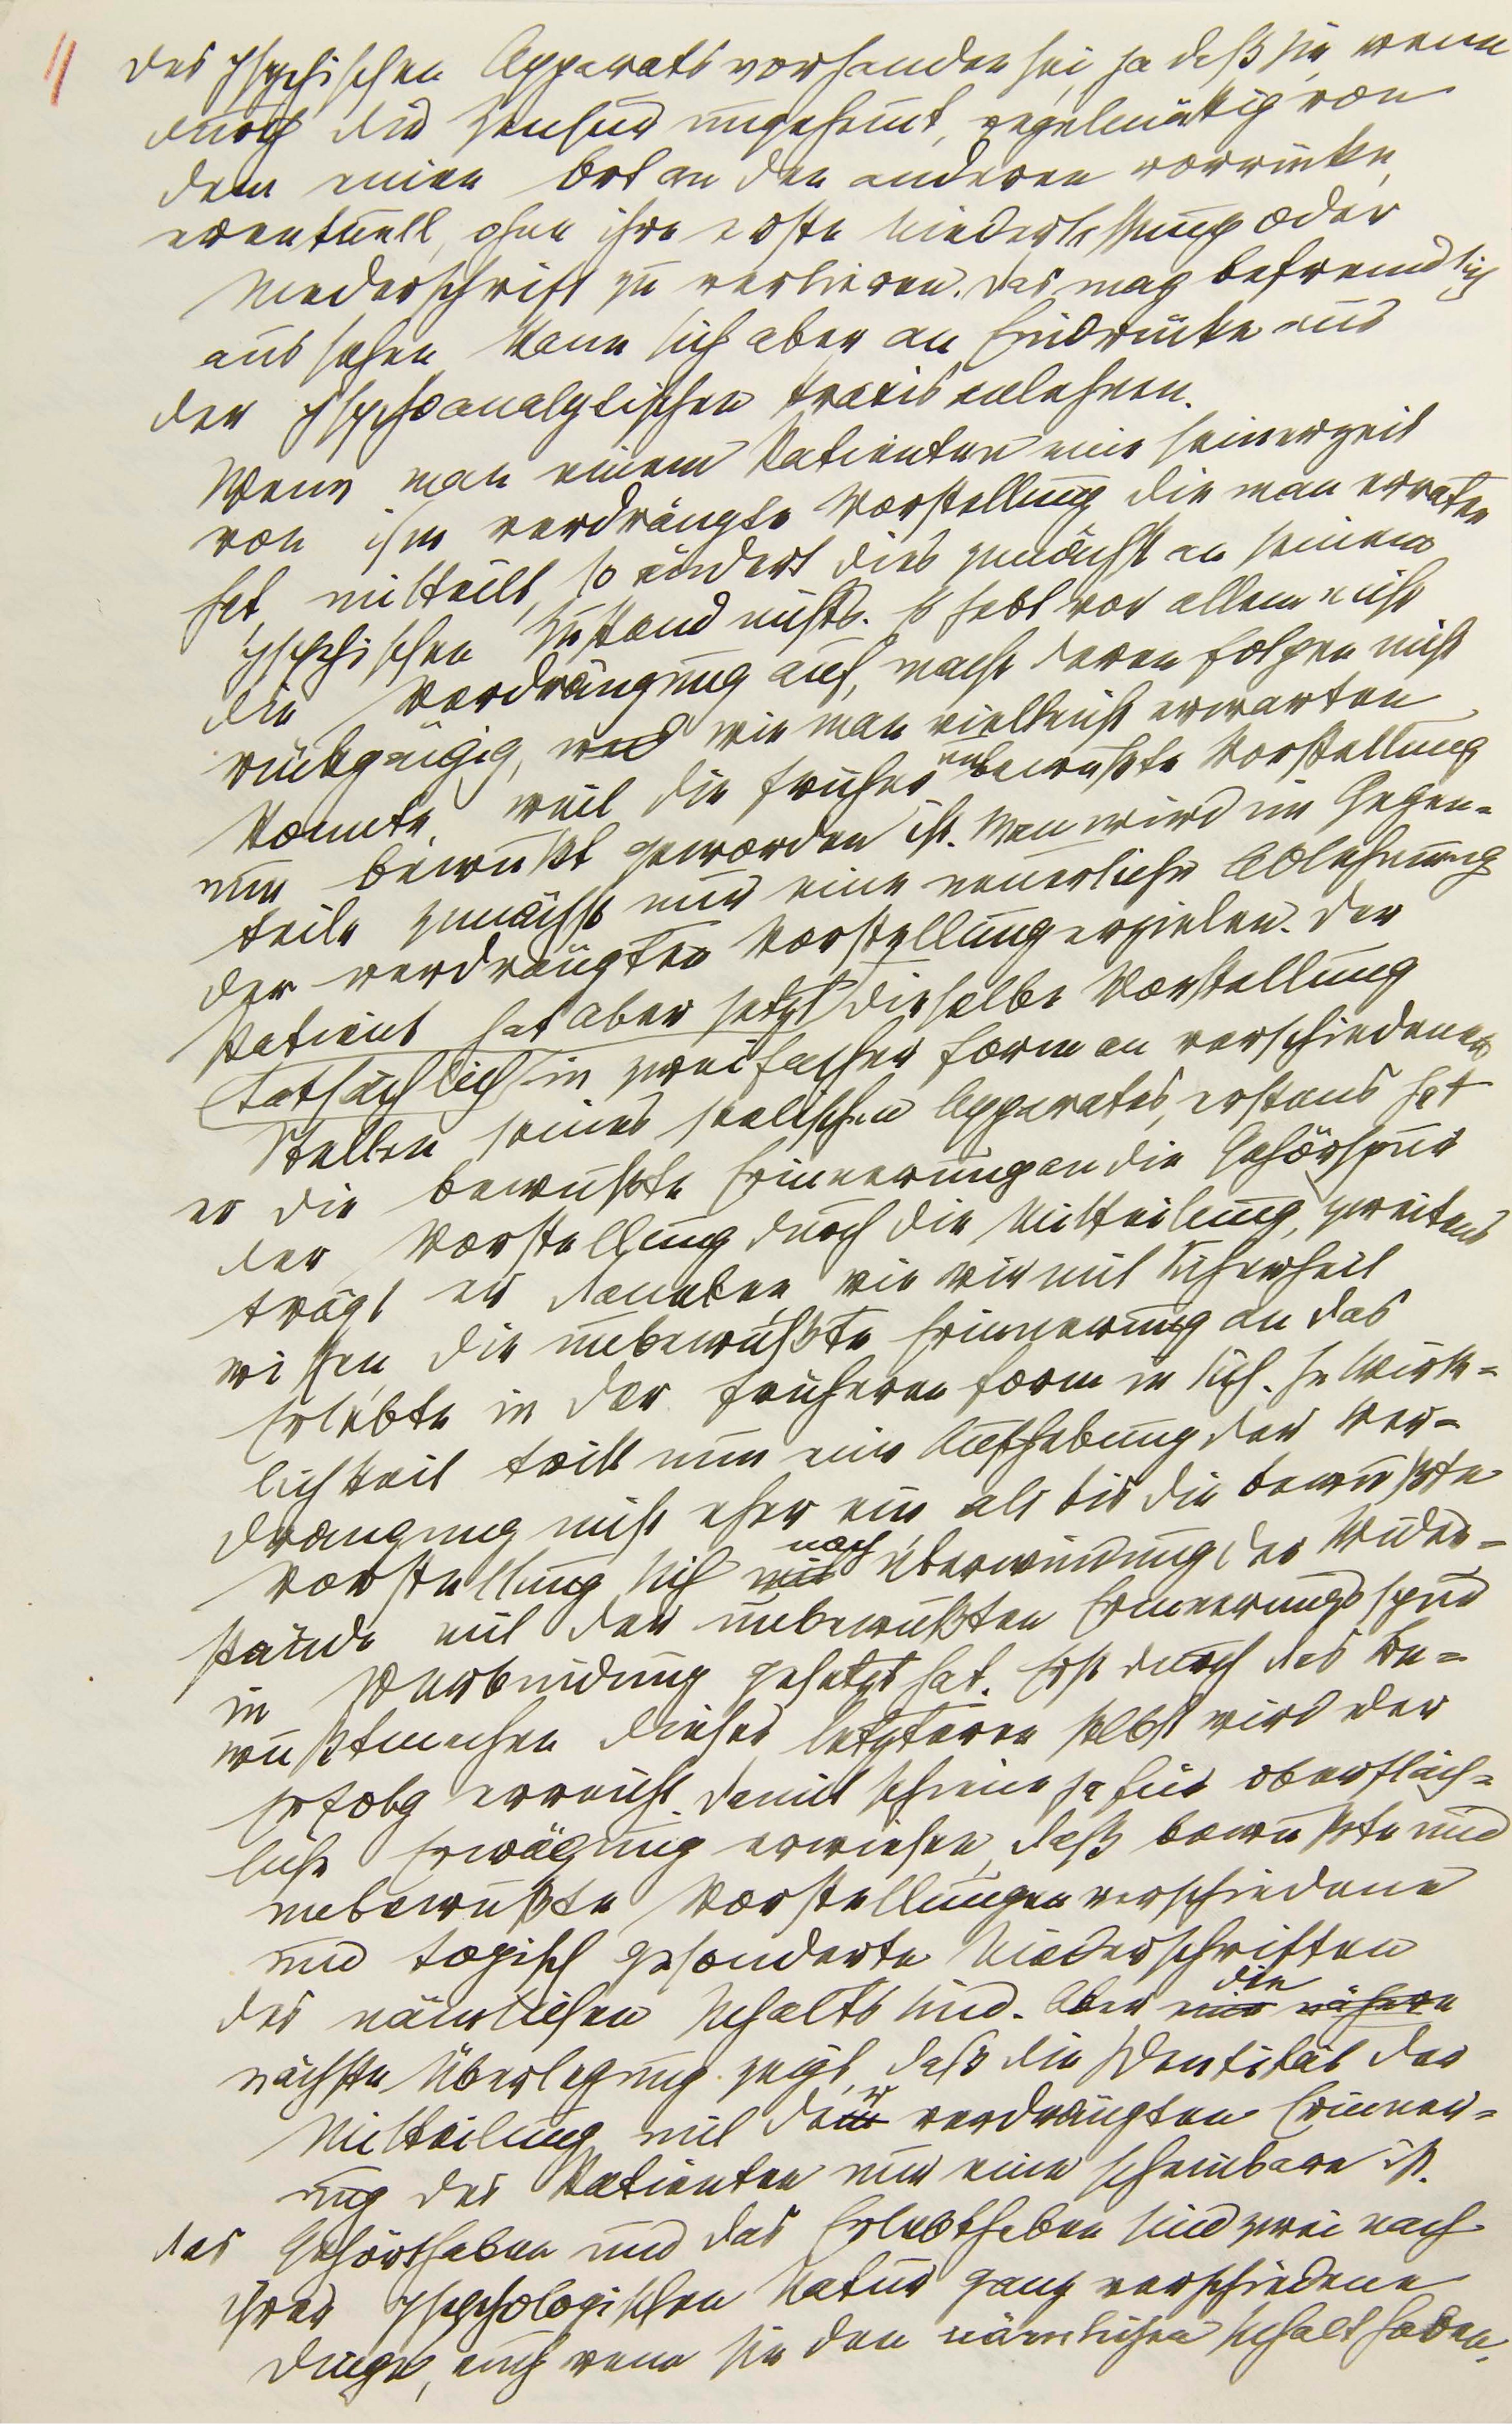 des psychischen Apparats vorhanden sei, ja daß sie, wenn
durch die Zensur ungehemmt, regelmäßig von
dem einen Ort an den anderen vorrücke,
eventuell, ohne ihre erste Niederlassung oder
Niederschrift zu verlieren. Das mag befremdlich
aussehen, kann sich aber an Eindrücke aus
der psychoanalytischen Praxis anlehnen.
Wenn man einem Patienten eine seinerzeit
von ihm verdrängte Vorstellung die man erraten
hat, mitteilt, so ändert dies zunächst an seinem
psychischen Zustand nichts. Es hebt vor allem nicht
die Verdrängung auf, macht deren Folgen nicht
rückgängig, wie man vielleicht erwarten
konnte, weil die früher unbewußte Vorstellung
nun bewußt geworden ist. Man wird im Gegen-
teile zunächst nur eine neuerliche Ablehnung
der verdrängten Vorstellung erzielen. Der
Patient hat aber jetzt dieselbe Vorstellung
tatsächlich in zweifacher Form an verschiedenen
Stellen seines seelischen Apparates, erstens hat
er die bewußte Erinnerung an die Gehörspur
der Vorstellung durch die Mitteilung, zweitens
trägt er daneben wie wir mit Sicherheit
wissen, die unbewußte Erinnerung an das
Erlebte in der früheren Form in sich. In Wirk-
lichkeit tritt nun eine Aufhebung der Ver-
drängung nicht eher ein als bis die bewußte
Vorstellung sich nach Überwindung der Wider-
stände mit der unbewußten Erinnerungsspur
in Verbindung gesetzt hat. Erst durch das Be-
wußtmachen dieser letzteren selbst wird der
Erfolg erreicht. Damit schiene ja für oberfläch-
liche Erwägung erwiesen, daß bewußte und
unbewußte Vorstellungen verschiedene
und topisch gesonderte Niederschriften
des nämlichen Inhalts sind. Aber die nähere
nächste Überlegung zeigt, daß die Identität der
Mitteilung mit der verdrängten Erinner-
ung des Patienten nur eine scheinbare ist.
Das Gehörthaben und das Erlebthaben sind zwei nach
ihrer psychologischen Natur ganz verschiedene
Dinge, auch wenn sie den nämlichen Inhalt haben.